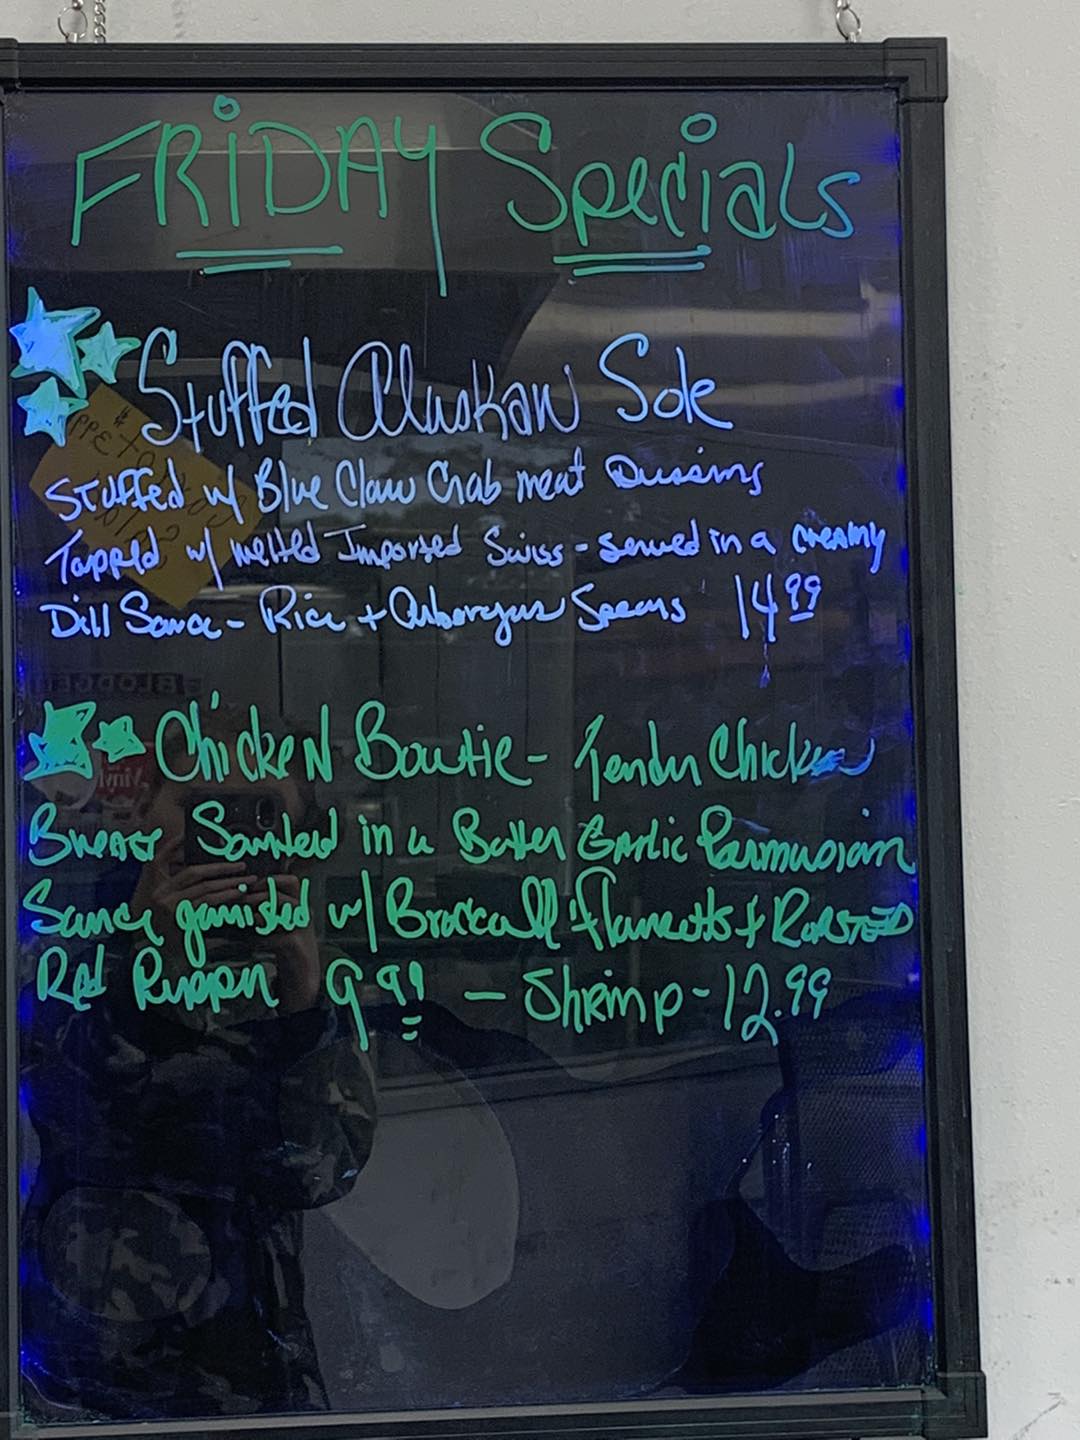 FRiDAY Specials
Stuffed Alaskan Sole
Stuffed w/ Blue Claw Crab meat Dressing
Topped w/ melted Imported Swiss - Served in a creamy
Dill Sauce - Rice + Asboragus Spears 14 99
Chicken Bowtie - Tender Chicken
Breast Sauteed in a Butter Garlic Parmusian
Sauce garnished w/ Broccoli flourettes + Roasted
Red Pepper 9 99 - Shrimp - 12.99